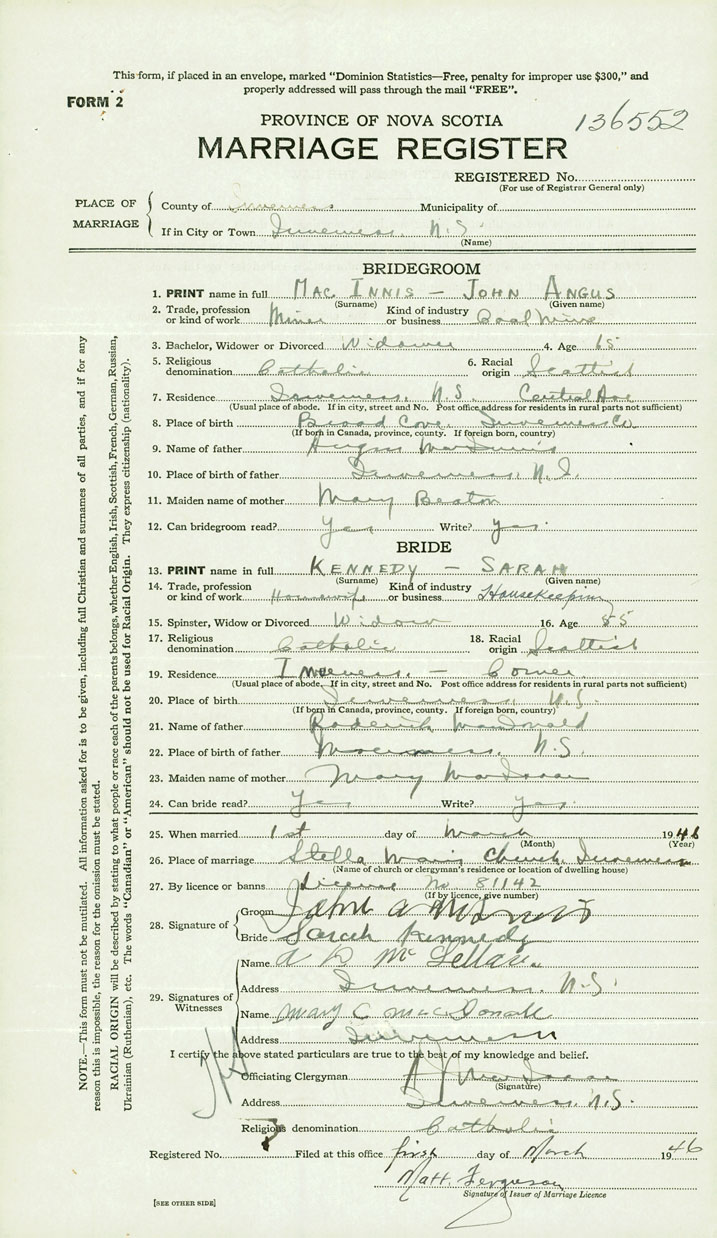 This form, if placed in an envelope, marked "Dominion Statistics—Free, penalty for improper use $300," and
properly addressed will pass through the mail "FREE".
FORM 2
PROVINCE OF NOVA SCOTIA 136552
MARRIAGE REGISTER
REGISTERED No.
(For use of Registrar General only)
PLACE OF MARRIAGE
County of Inverness Municipality of
If in City or Town Inverness. N.S.
(Name)
BRIDEGROOM
1. PRINT name in full MAC INNIS — JOHN ANGUS
(Surname) (Given name)
2. Trade, profession or kind of work Miner Kind of industry or business Coal Mine
3. Bachelor, Widower or Divorced Widower 4. Age 65
5. Religious denomination Catholic 6. Racial origin Scottish
7. Residence Inverness. N.S. Central Ave
(Usual place of abode. If in city, street and No. Post office address for residents in rural parts not sufficient)
8. Place of birth Broad Cove. Inverness Co
(If born in Canada, province, county. If foreign born, country)
9. Name of father Angus MacInnis
10. Place of birth of father Inverness. N.S.
11. Maiden name of mother Mary Beaton
12. Can bridegroom read? Yes Write? yes.
BRIDE
13. PRINT name in full KENNEDY — SARAH
(Surname) (Given name)
14. Trade, profession or kind of work Housewife Kind of industry or business Housekeeping
15. Spinster, Widow or Divorced Widow 16. Age 55
17. Religious denomination Catholic 18. Racial origin Scottish
19. Residence Inverness. —
(Usual place of abode. If in city, street and No. Post office address for residents in rural parts not sufficient)
20. Place of birth Inverness. N.S.
(If born in Canada, province, county. If foreign born, country)
21. Name of father Roderick MacDonald
22. Place of birth of father Inverness. N.S.
23. Maiden name of mother Mary MacIsaac
24. Can bride read? Yes Write? yes.
25. When married 1st day of March 1946
(Month) (Year)
26. Place of marriage Stella Maris Church. Inverness
(Name of church or clergyman's residence or location of dwelling house)
27. By licence or banns License No 81142
(If by licence, give number)
28. Signature of
Groom John A McInnis
Bride Sarah Kennedy
29. Signatures of Witnesses
Name A D McLellan
Address Inverness. N.S.
Name Mary C MacDonald
Address Inverness
I certify the above stated particulars are true to the best of my knowledge and belief.
Officiating Clergyman A J MacIsaac
(Signature)
Address Inverness. N.S.
Religious denomination Catholic
Registered No. Filed at this office first day of March 1946
Matt. Ferguson
Signature of Issuer of Marriage Licence
[SEE OTHER SIDE]
NOTE.—This form must not be mutilated. All information asked for is to be given, including full Christian and surnames of all parties, and if for any
reason this is impossible, the reason for the omission must be stated.
RACIAL ORIGIN will be described by stating to what people or race each of the parents belongs, whether English, Irish, Scottish, French, German, Russian,
Ukrainian (Ruthenian), etc. The words "Canadian" or "American" should not be used for Racial Origin. They express citizenship (nationality).